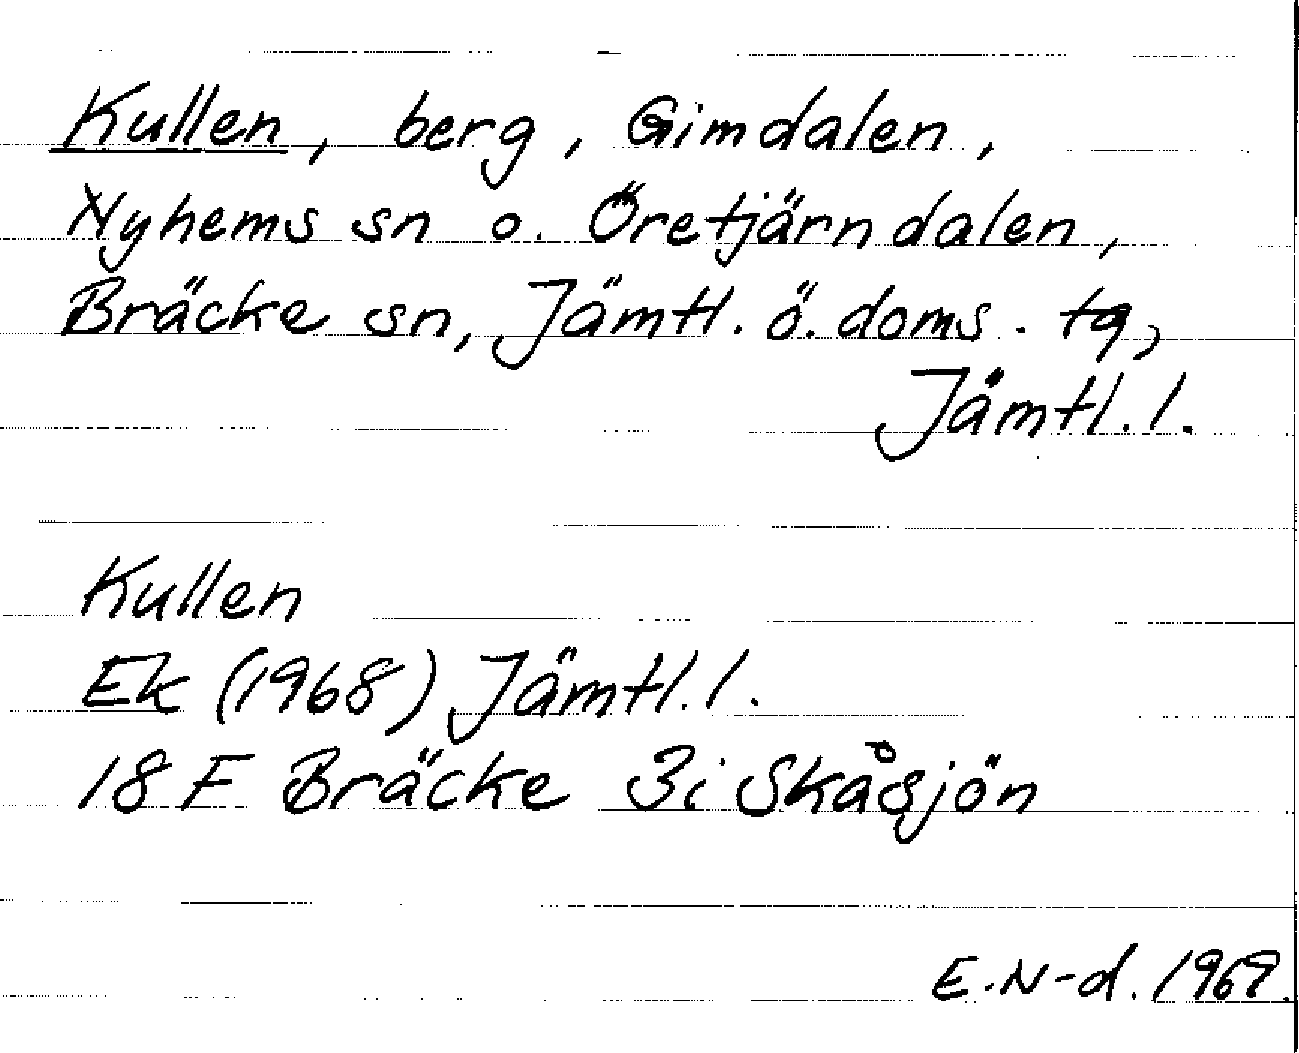 Kullen, berg, Gimdalen,
Nyhems sn o. Öretjärndalen,
Bräcke sn, Jämtl. ö. doms. tg,
Jämtl. l.
Kullen
Ek (1968) Jämtl. l.
18 F Bräcke 3i Skåsjön
E. N-d. 1969.